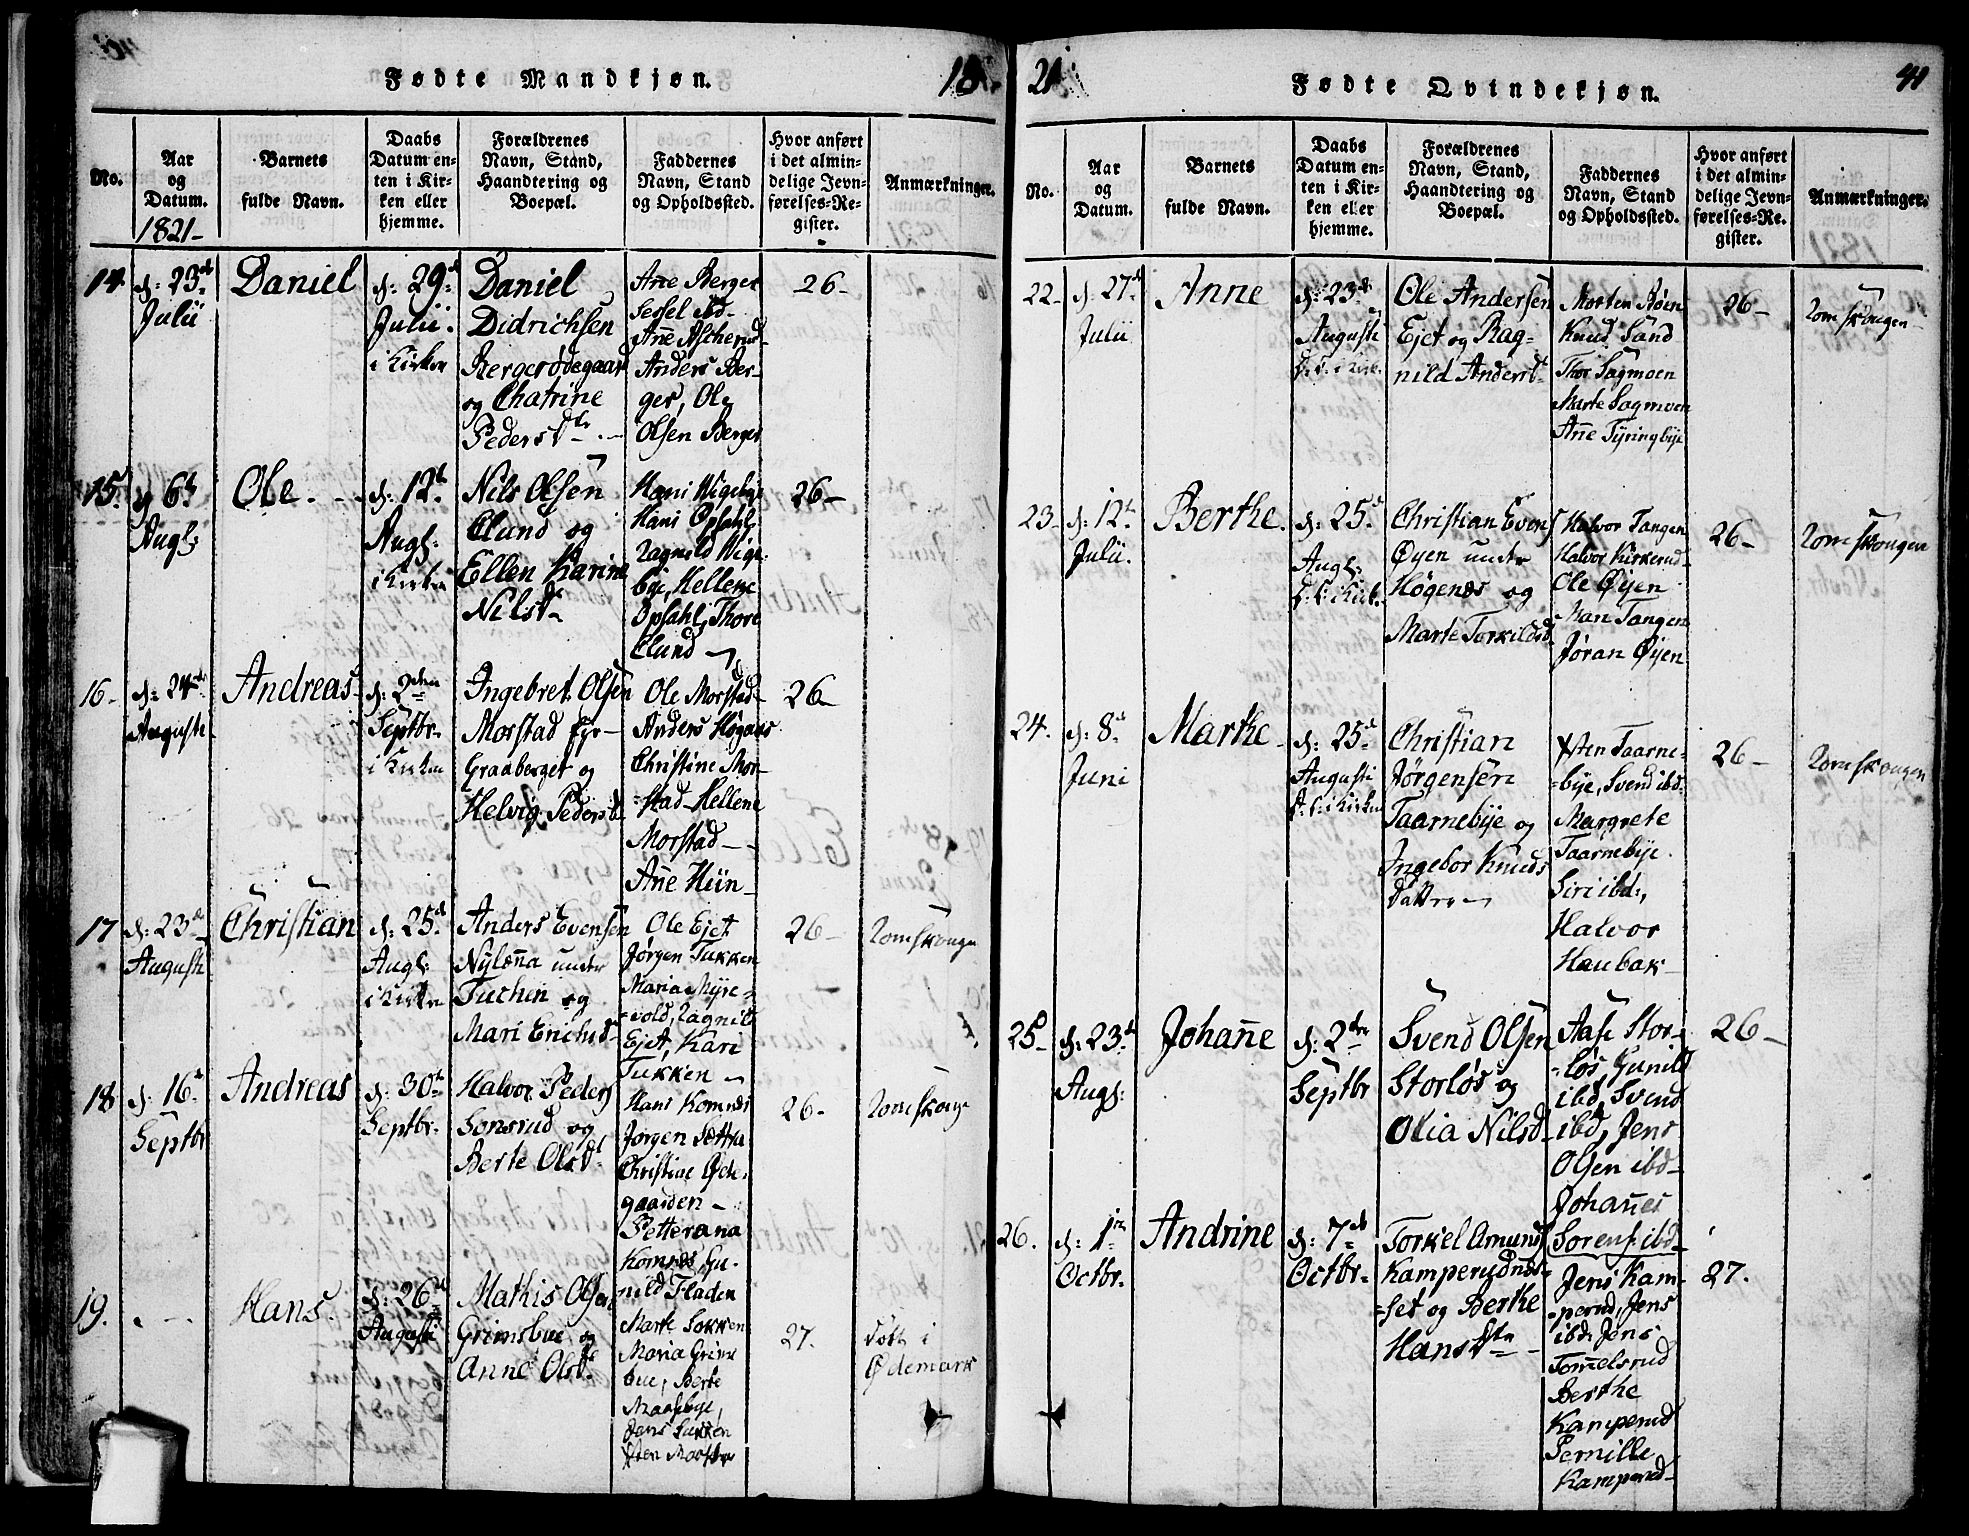 Fødte Mandkjøn.
18
No.
Aar
og
Datum.
1821-
Barnets
fulde Navn.
Daabs
Datum en-
ten i Kir-
ken eller
hjemme.
Forældrenes
Navn, Stand,
Haandtering og
Boepæl.
Faddernes
Navn, Stand
og Opholdssted.
Hvor anført
i det almin-
delige Jevn-
førelses-Re-
gister.
Anmærkninger.
14.
d: 23de
Julii
Daniel
d: 29de
Julii.
i Kirken
Daniel
Didrichsen
Bergerødegaard
og Chatrine
Pedersdtr
Añe Berger
Sessel ibd-
Añe Ascherud
Anders Ber-
ger, Ole
Olsen Berger
26-
15.
6te
Augs:
Ole.
d: 12te
Augs:
i Kirken
Nils Olsen
Elund og
Ellen Karine
Nilsd
Hans Wigebye
Hans Opsahl,
Ragnild Wige-
bye, Hellene
Opsahl, Thore
Elund
26-
16-
d: 24de
Augusti-
Andreas
d: 2den
Septbr-
i Kirken
Ingebret Olsen
Morstad
Graaberget og
Helvig Pedersd
Ole Morstad-
Anders Høgnæs
Christine Mor-
=stad-Hellene
Morstad-
Añe Hün-
26-
17
d: 23de
Augusti
Christian
d: 25de
Augs:
i Kirken
Anders Evensen
Nylæña under
Tuchen og
Mari Erichsd-
Ole Ejet
Jørgen Tukken
Maria Myre=
=vold, Ragnil
Ejet, Kari
Tukken
26-
Romskougen
18
d: 16de
Septbr
Andreas
d: 30te
Septbr-
Halvor Peders
Sonsrud og
Berte Olsd
Hans Kornnes
Jørgen Sættra
Christine Øde-
gaarden-
Petterana
Kornnes, Gu-
nild Fladen
26-
Romskouge
19.
Hans.
d: 26de
Augusti
Mathis Olsen
Grimsbue og
Anne Olsd
Marte Sokken
Maria Grims
bue, Berte
Maasebye,
Jens Sukken
27.
døbt i
Ødemark
21
Fødte Qvindekjøn.
41
No.
Aar
og
Datum.
Barnets
fulde Navn.
Daabs
Datum en-
ten i Kir-
ken eller
hjemme.
Forældrenes
Navn, Stand,
Haandtering og
Boepæl.
Faddernes
Navn, Stand
og Opholdssted.
Hvor anført
i det almin-
delige Jevn-
førelses-Re-
gister.
Anmærkninger.
22-
d. 27de
Julii
Anne
d: 23de
Augusti
Ole Andersen
Ejet og Rag=
nild Andersd
Morten Røen
Knud Sand
Thor Sagmoen
Marte Sagmoen
Añe Tyringbye
26-
Romskougen-
23-
d: 12te
Julii.
Berthe.
d: 25de
Augs:
Christian Evens
Øyen under
Høgenæs og
Marte Torkildsd
Halvor Tangen
Halvor Kirkerud-
Ole Øyen
Mari Tangen
Jøran Øyen
26-
Romskougen
24.
d: 8de
Juni
Marthe
d: 25de
Augusti
Christian
Jørgensen
Taarnebye og
Ingebor Knuds
datter
Østen Taarne-
=bye, Svend ibd:
Margrete
Taarnebye.
Siri ibd:,
Halvor
Haubak-
26-
Romskougen
25-
d: 23de
Augs:
Johañe
d: 2den
Septbr
Svend Olsen
Storløs og
Olia Nilsd
Aase Stor-
=løs, Gunild
ibd, Svend
ibd, Jens
Olsen ibd-
Johañes
Sorens: ibd-
26-
26.
d: 1ste
Octbr-
Andrine
d: 7de
Octbr-
Torkel Amunds
Kamperudnes-
=set og Berthe
Hansdtr
Jens Kam-
=perud, Jens
ibd: Jens
Tom̃elsrud
Berthe
Kamperud
Pernille
Kamperud-
27.